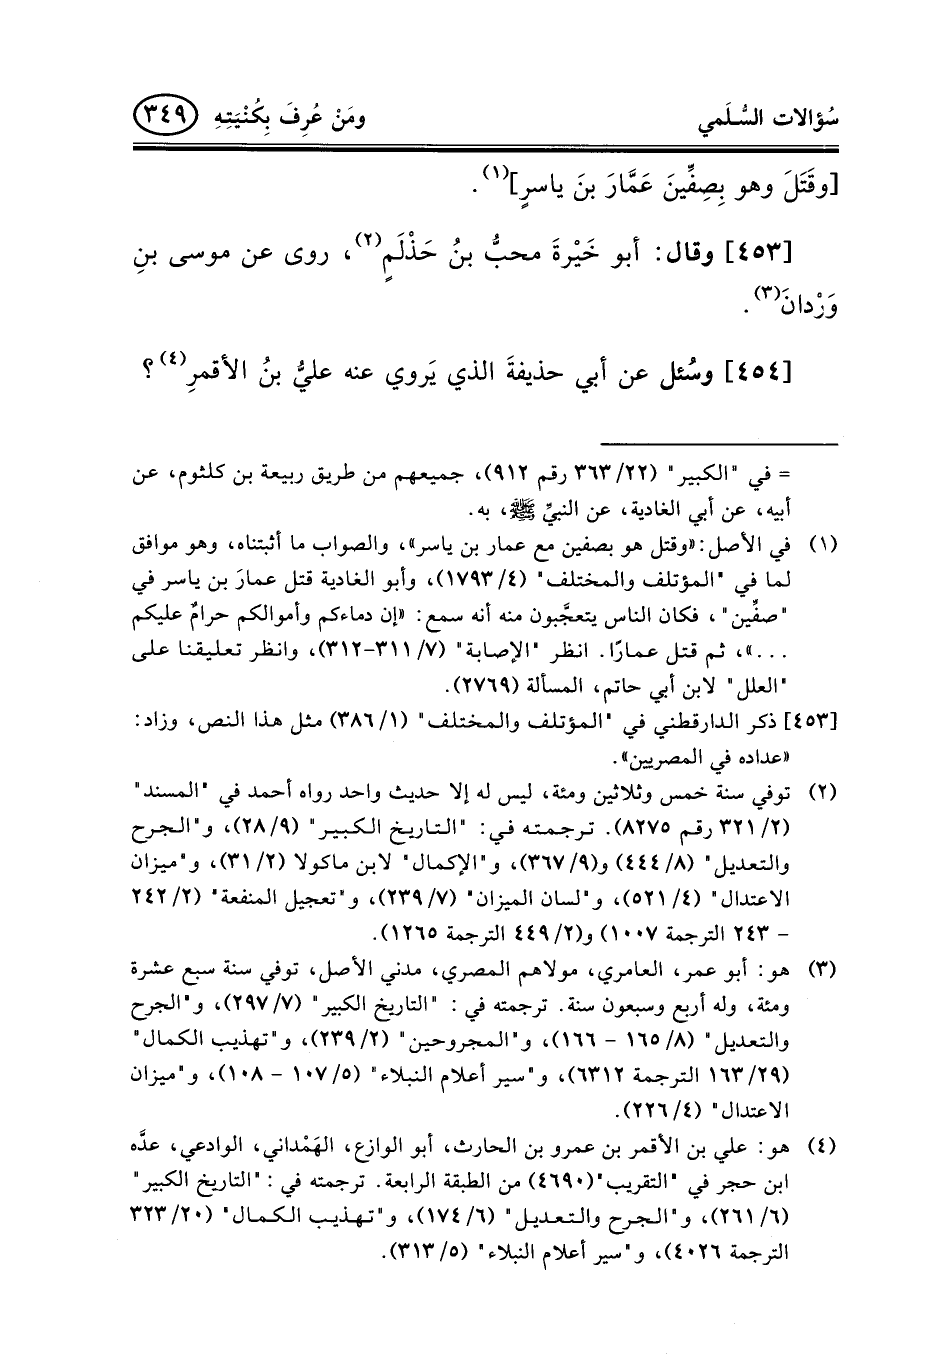 سُؤالات السُّلَمي ومَنْ عُرِفَ بِكُنْيَتِهِ ٣٤٩
[وقَتَلَ وهو بِصِفِّينَ عَمَّارَ بنَ ياسرٍ](١).
[٤٥٣] وقال: أبو خَيْرةَ محبُّ بنُ حَذْلَمٍ(٢)، روى عن موسى بنِ
وَرْدانَ(٣).
[٤٥٤] وسُئل عن أبي حذيفةَ الذي يَروي عنه عليُّ بنُ الأقمرِ(٤)؟
= في "الكبير" (٢٢/ ٣٦٣ رقم ٩١٢)، جميعهم من طريق ربيعة بن كلثوم، عن
أبيه، عن أبي الغادية، عن النبيِّ ﷺ، به.
(١) في الأصل: «وقتل هو بصفين مع عمار بن ياسر»، والصواب ما أثبتناه، وهو موافق
لما في "المؤتلف والمختلف" (٤/ ١٧٩٣)، وأبو الغادية قتل عمارَ بن ياسر في
"صفِّين"، فكان الناس يتعجَّبون منه أنه سمع: «إن دماءكم وأموالكم حرامٌ عليكم
...»، ثم قتل عمارًا. انظر "الإصابة" (٧/ ٣١١-٣١٢)، وانظر تعليقنا على
"العلل" لابن أبي حاتم، المسألة (٢٧٦٩).
[٤٥٣] ذكر الدارقطني في "المؤتلف والمختلف" (١/ ٣٨٦) مثل هذا النص، وزاد:
«عداده في المصريين».
(٢) توفي سنة خمس وثلاثين ومئة، ليس له إلا حديث واحد رواه أحمد في "المسند"
(٢/ ٣٢١ رقم ٨٢٧٥). ترجمته في: "التاريخ الكبير" (٩/ ٢٨)، و"الجرح
والتعديل" (٨/ ٤٤٤) و(٩/ ٣٦٧)، و"الإكمال" لابن ماكولا (٢/ ٣١)، و"ميزان
الاعتدال" (٤/ ٥٢١)، و"لسان الميزان" (٧/ ٢٣٩)، و"تعجيل المنفعة" (٢/ ٢٤٢
- ٢٤٣ الترجمة ١٠٠٧) و(٢/ ٤٤٩ الترجمة ١٢٦٥).
(٣) هو: أبو عمر، العامري، مولاهم المصري، مدني الأصل، توفي سنة سبع عشرة
ومئة، وله أربع وسبعون سنة. ترجمته في: "التاريخ الكبير" (٧/ ٢٩٧)، و"الجرح
والتعديل" (٨/ ١٦٥ - ١٦٦)، و"المجروحين" (٢/ ٢٣٩)، و"تهذيب الكمال"
(٢٩/ ١٦٣ الترجمة ٦٣١٢)، و"سير أعلام النبلاء" (٥/ ١٠٧ - ١٠٨)، و"ميزان
الاعتدال" (٤/ ٢٢٦).
(٤) هو: علي بن الأقمر بن عمرو بن الحارث، أبو الوازع، الهَمْداني، الوادعي، عدَّه
ابن حجر في "التقريب"(٤٦٩٠) من الطبقة الرابعة. ترجمته في: "التاريخ الكبير"
(٦/ ٢٦١)، و"الجرح والتعديل" (٦/ ١٧٤)، و"تهذيب الكمال" (٢٠/ ٣٢٣
الترجمة ٤٠٢٦)، و"سير أعلام النبلاء" (٥/ ٣١٣).